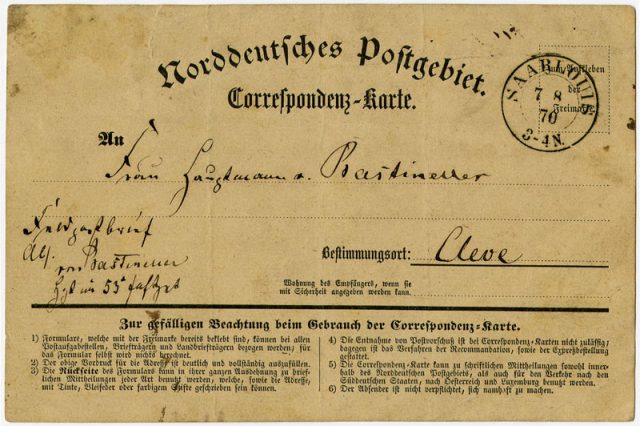 Norddeutsches Postgebiet.
Correspondenz-Karte.
Zum Aufkleben
der
Freimarke
SAARLOUIS
7 8
70
3-4N.
An
Frau Hauptmann v. Bastineller
Feldpostbrief
Bestimmungsort: Cleve
Wohnung des Empfängers, wenn sie
mit Sicherheit angegeben werden kann.
Zur gefälligen Beachtung beim Gebrauch der Correspondenz-Karte.
1) Formulare, welche mit der Freimarke bereits beklebt sind, können bei allen
Postaufgabestellen, Briefträgern und Landbriefträgern bezogen werden; für
das Formular selbst wird nichts berechnet.
2) Der obige Vordruck für die Adresse ist deutlich und vollständig auszufüllen.
3) Die Rückseite des Formulars kann in ihrer ganzen Ausdehnung zu brief-
lichen Mittheilungen jeder Art benutzt werden, welche, sowie die Adresse,
mit Tinte, Bleifeder oder farbigem Stifte geschrieben sein können.
4) Die Entnahme von Postvorschuß ist bei Correspondenz-Karten nicht zulässig;
dagegen ist das Verfahren der Recommandation, sowie der Expreßbestellung
gestattet.
5) Die Correspondenz-Karte kann zu schriftlichen Mittheilungen sowohl inner-
halb des Norddeutschen Postgebiets, als auch für den Verkehr nach den
Süddeutschen Staaten, nach Oesterreich und Luxemburg benutzt werden.
6) Der Absender ist nicht verpflichtet, sich namhaft zu machen.